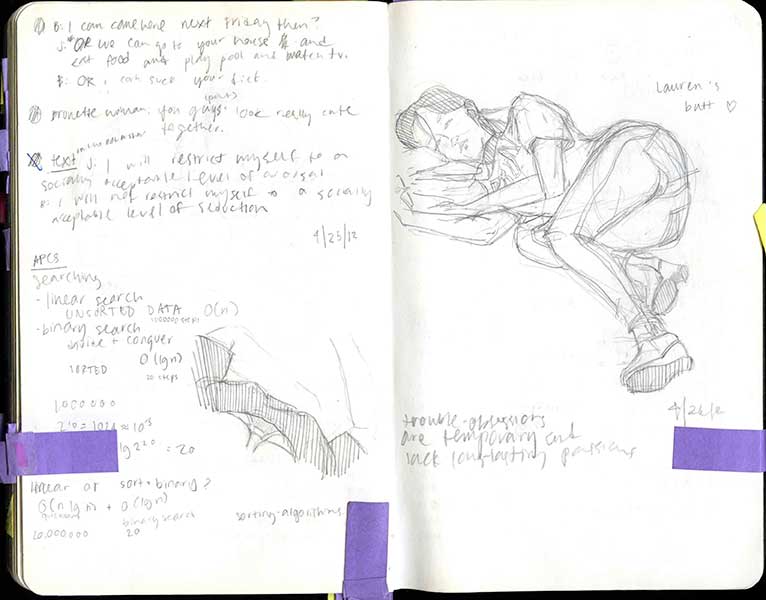 B: I can come here next Friday then?
J: "OR we can go to your house and
eat food and play pool and watch tv.
B: OR, I can suck your dick.
Brunette woman: you guys look really cute
together.
text J: I will restrict myself to a
socially acceptable level of arousal
B: I will not restrict myself to a socially
acceptable level of seduction
4/25/12
APCS
searching
- linear search
UNSORTED DATA O(n)
1000000 steps
- binary search
divide + conquer
SORTED O(lgn)
20 steps
1000000
lg 2^20 = 20
linear or sort + binary?
O(n lg n) + O(lgn)
binary search
20,000,000 20
sorting-algorithms
Lauren's
butt ♡
4/26/12
trouble-obsessions
are temporary and
lack long-lasting passions